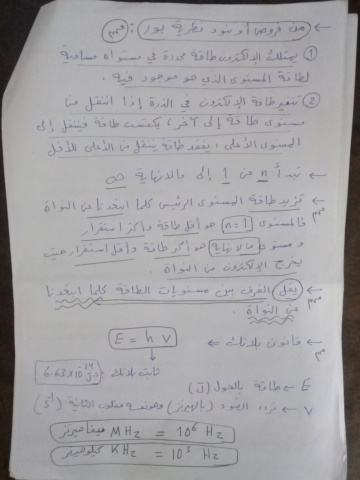 ← من فروض أو بنود نظرية بور: مهم
① يمتلك الإلكترون طاقة محددة في مستواه مساوية
لطاقة المستوى الذي هو موجود فيه.
② تتغير طاقة الإلكترون في الذرة إذا انتقل من
مستوى طاقة إلى آخر، يكتسب طاقة فينتقل إلى
المستوى الأعلى، يفقد طاقة ينتقل من الأعلى للأقل
← تبدأ n من 1 إلى مالانهاية ∞
← تزيد طاقة المستوى الرئيس كلما ابتعدنا عن النواة
مهم
فالمستوى n=1 هو أقل طاقة وأكثر استقرار
ومستوى مالانهاية هو أكبر طاقة وأقل استقرار حيث
يخرج الإلكترون من النواة.
← يقل الفرق بين مستويات الطاقة كلما ابتعدنا
مهم
عن النواة.
← قانون بلانك
مهم
E = h ν
ثابت بلانك: 6.63x10⁻³⁴ J.s
E ← طاقة بالجول (J)
ν ← تردد الضوء (بالهيرتز) وهو نفسه مقلوب الثانية (s⁻¹)
ميغاهيرتز MHz = 10⁶ Hz
كيلوهيرتز KHz = 10³ Hz